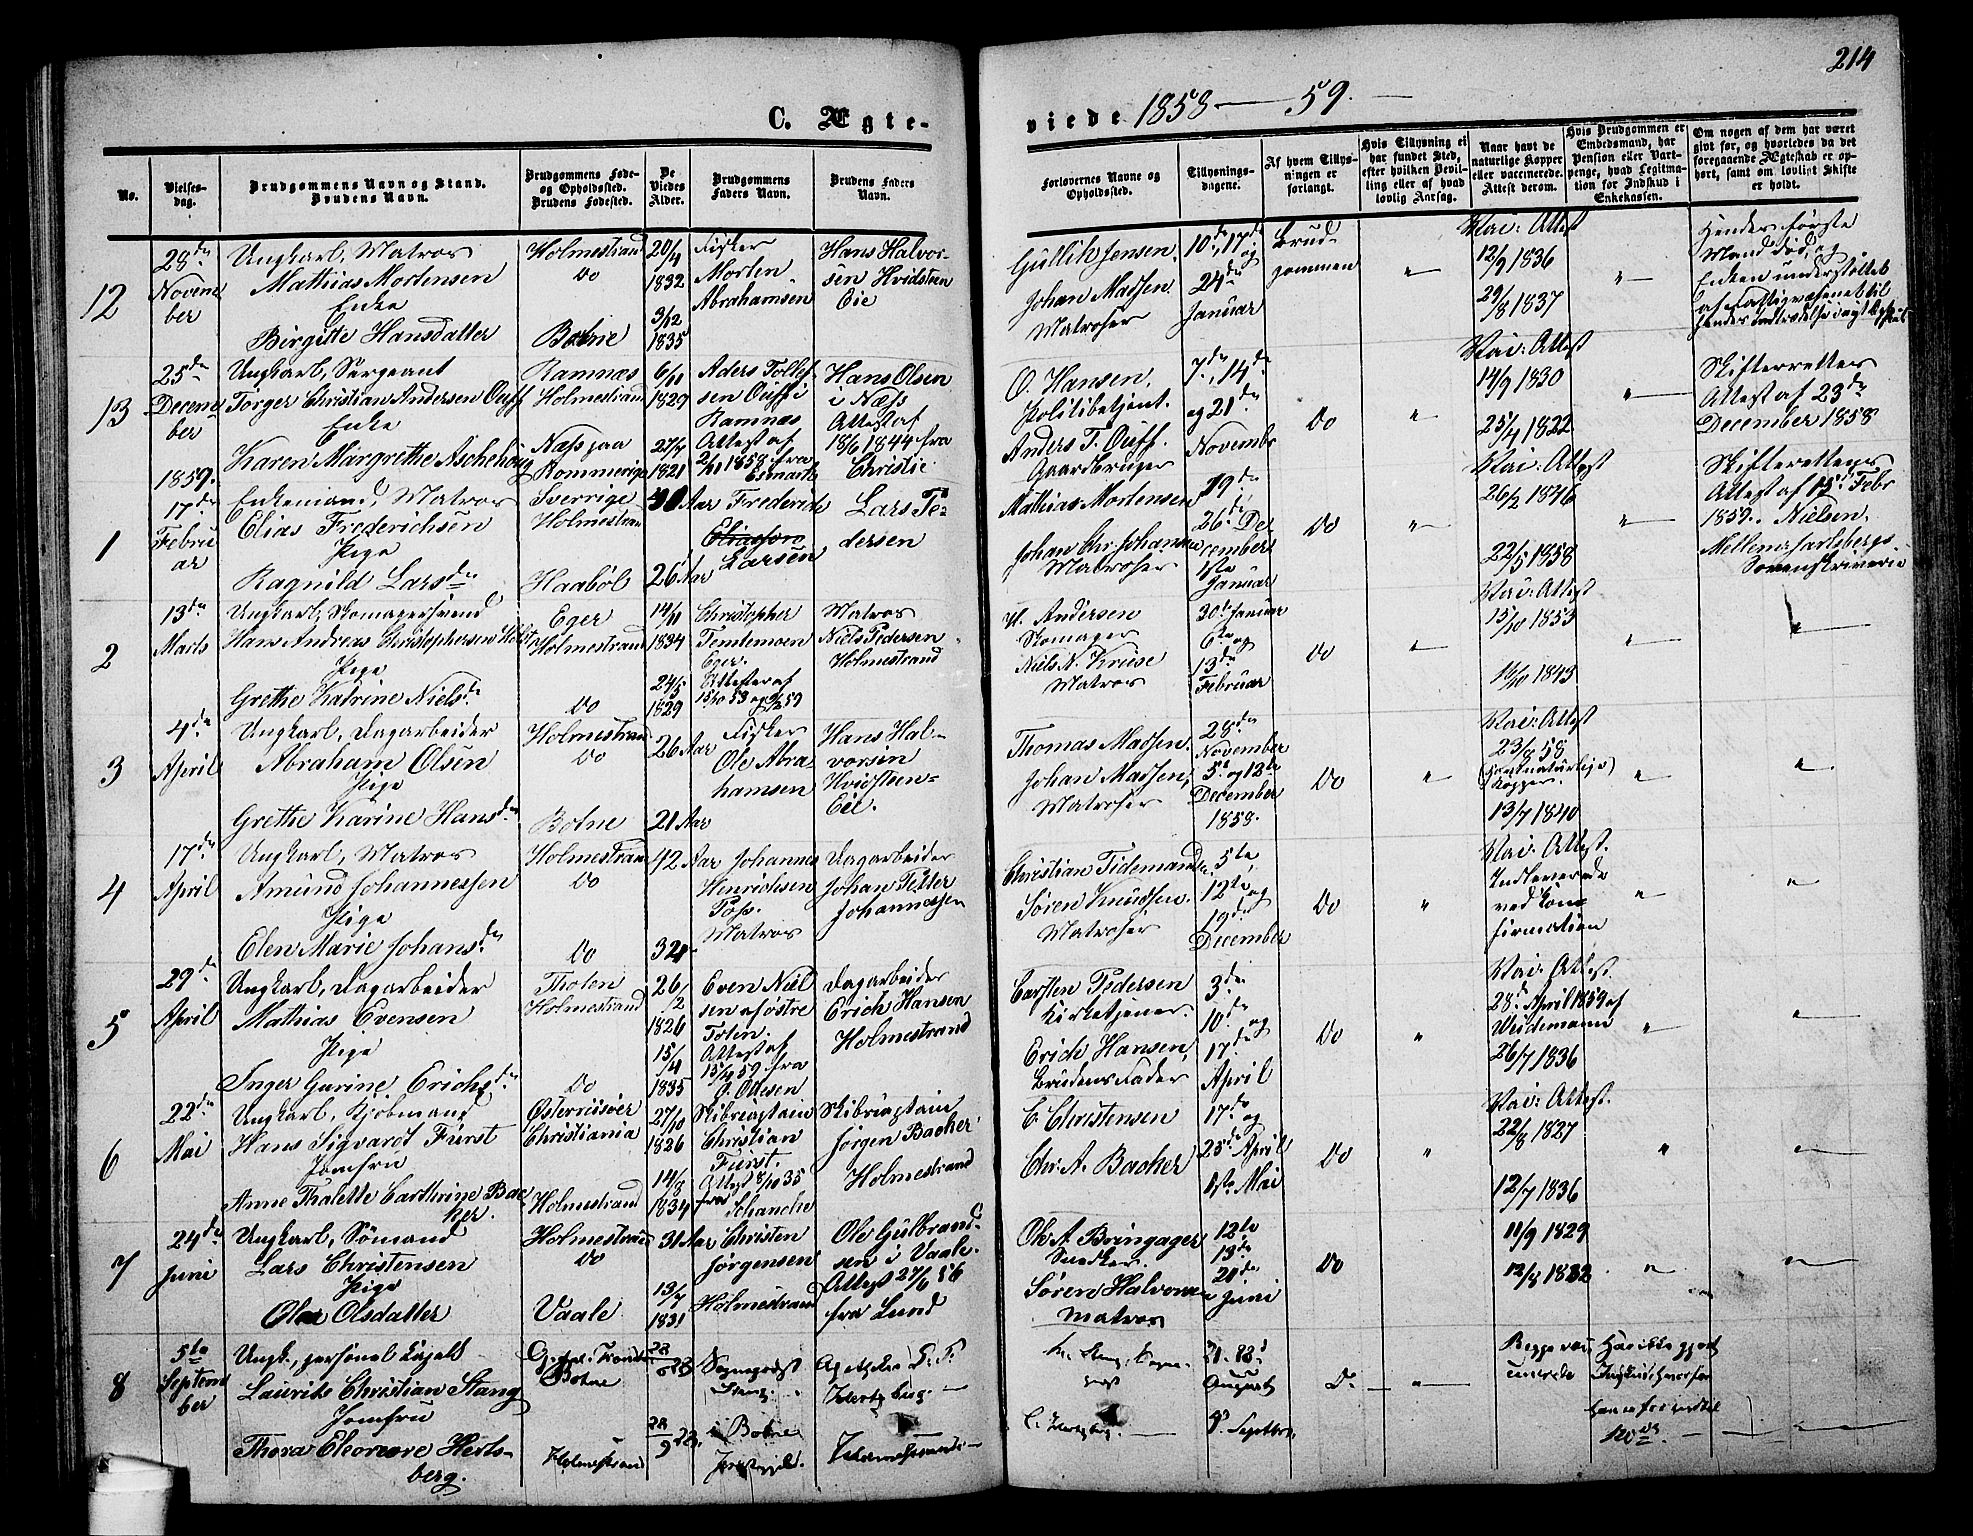 214
C. Ægte-
viede 1858 — 59. —
No.
Vielses-
dag.
Brudgommens Navn og Stand.
Brudens Navn.
Brudgommens Føde-
og Opholdssted.
Brudens Fødested.
De
Viedes
Alder.
Brudgommens
Faders Navn.
Brudens Faders
Navn.
Forlovernes Navne og
Opholdssted.
Tillysnings-
dagene.
Af hvem Tillys-
ningen er
forlangt.
Hvis Tillysning ei
har fundet Sted,
efter hvilken Bevil-
ling eller af hvad
lovlig Aarsag.
Naar havt de
naturlige Kopper
eller vaccinerede.
Attest derom.
Hvis Brudgommen er
Embedsmand, har
Pension eller Vart-
penge, hvad Legitima-
tion for Indskud i
Enkekassen.
Om nogen af dem har været
gift før, og hvorledes da det
foregaaende Ægteskab er op-
hørt, samt om lovligt Skifte
er holdt.
12
28de
Novem
ber
Ungkarl, Matros
Mathias Mortensen
Enke
Birgitte Hansdatter
Holmestrand
Do
Botne
20/4
1832
3/12
1835
Fisker
Morten
Abrahamsen
Hans Halvor-
sen Hvidsteen
Eie
Gullik Jensen.
Johan Madsen.
Matroser
10de, 17de
og
24de
Januar
Brud-
gommen
"
Vac: Attest
12/9 1836
29/8 1837
"
Hendes første
Mand død, og
Enken understøttet
af Fattigvæsenet til
13
25de
Decem
ber
Ungkarl, Sergeant
Torger Christian Andersen Ouff
Enke
Karen Margrethe Aschehoug
Ramnæs
Holmestrand
Næs paa
Rommerige
6/11
1829
27/7
1821
Aders Tollef
sen Ouff i
Ramnæs
Attest af
2/11 1858 fra
Esmark
Hans Olsen
i Næss
Attest af
18/6 1844 fra
Christie
O. Hansen,
Politibetjent.
Anders T. Ouff.
Gaardbruger
7de, 14de
og 21de
Novembr
Do
"
Vac: Attest
14/9 1830
25/4 1822
"
Skifterettens
Attest af 23de
December 1858
1859.
1
17de
Febru
ar
Enkemand, Matros
Elias Frederichsen
Pige
Ragnild Larsdr
Sverrige
Holmestran
Haabøl
30 Aar
26 Aar
Frederich
Larsen
Lars Pe-
dersen
Mathias Mortensen
Johan Chr Johansen
Matroser
19de
26de De
cember
1ste
Januar
Do
"
Vac: Attest
26/2 1846
22/5 1858
"
Skifterettens
Attest af 15de Febr
1859. Nielsen.
Mellem Jarlsbergs
Sorenskriverie
2
13de
Marts
Ungkarl, Skomagersvend
Hans Andreas Christophersen Holst
Pige
Grethe Katrine Nielsdr
Eger
Holmestrand
Do
14/11
1834
24/5
1829
Christopher
Temtemoen
Eger.
Attester af
Matros
Niels Pedersen
Holmestrand
H. Andersen
Skomager
Niels N. Kruse
Matros
30te Januar
6te og
13de
Februar
Do
"
Vac: Attest
15/10 1853
16/10 1843
"
"
3
4de
April
Ungkarl, Dagarbeider
Abraham Olsen
Pige
Grethe Karine Hansdr
Holmestrand
Do
Botne
26 Aar
21 Aar
Fisker
Ole Abra-
hamsen
Hans Hal-
vorsen
Hvidsteen-
Eie.
Thomas Madsen.
Johan Madsen,
Matroser
28de
November
5te og 12te
December
1858.
Do
"
Vac: Attest
23/8 58
(havt naturlige)
Kopper.
13/7 1840
"
"
4
17de
April
Ungkarl, Matros
Amund Johannessen
Pige
Elen Marie Johansdr
Holmestran
Do
Do
42 Aar
32 "
Johannes
Henrichsen
Poss.
Matros
Dagarbeider
Johan Petter
Johannessen
Christian Tidemand
Søren Knudsen.
Matroser
5te,
12te og
19de
December
Do
"
Vac: Attest.
Indleverede
ved Kon-
firmation
"
"
5
29de
April
Ungkarl, Dagarbeider
Mathias Evensen
Pige
Inger Gurine Erichsdr
Thoten
Holmestrand
Do
26/2
1826
15/4
1835
Even Niel
sen af østre
Toten.
Attest af
15/4 59 fra
G. Ottesen
Dagarbeider
Erich Hansen
Holmestrand
Carsten Pedersen
Kirketjener.
Erich Hansen,
Brudens Fader
3de
10de
og
17de
April
Do
"
Vac: Attest.
28de April 1859 af
Weidemann
26/7 1836
"
"
6
22de
Mai
Ungkarl, Kjøbmand
Hans Sigvardt Furst
Jomfru
Anne Thalette Carthrine Bac
ker.
Østerriisøer
Christiania
Holmestrand
27/10
1826
14/8
1834
Skibscaptain
Christian
Furst.
Attest 8/10 35
fra
Schanche
Skibscaptain
Jørgen Backer
Holmestrand
C Christensen
Chr. A. Backer
17de
og
25de April
1ste Mai
Do
"
Vac: Attest.
22/8 1827
12/7 1836
"
"
7
24de
Juni
Ungkarl, Sømand
Lars Christensen
Pige
Olea Olsdatter
Holmestran
Do
Vaale
31 Aar
13/7
1831
Christen
Jørgensen
Holmestrand
Ole Gulbrand-
sen i Vaale.
Attest 27/6 56
fra Lund
Ole A. Bringager
Snedker.
Søren Halvorsen
matros
12te
13de
21de
Juni
Do
11/9 1829
12/8 1832
"
"
8
5te
Septem
ber
Ungk., personel Capel
Laurits Christian Stang
Jomfru
Thora Eleonore Herts-
berg.
Botne
Holmestrand
28
28
Sogneprest
Stang
i Botne
Præstegjeld
Apotheker
Hertzberg.
Holmestrand
C. Hertzberg.
21. 28de
August
4de Septbr.
Do
"
Begge vac
cinerede